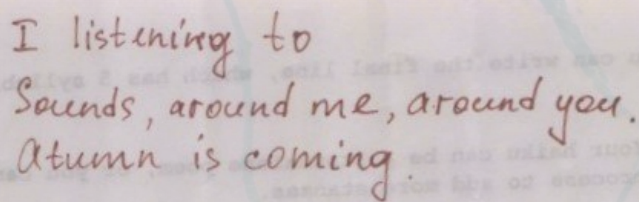 I listening to
Sounds, around me, around you.
Atumn is coming.